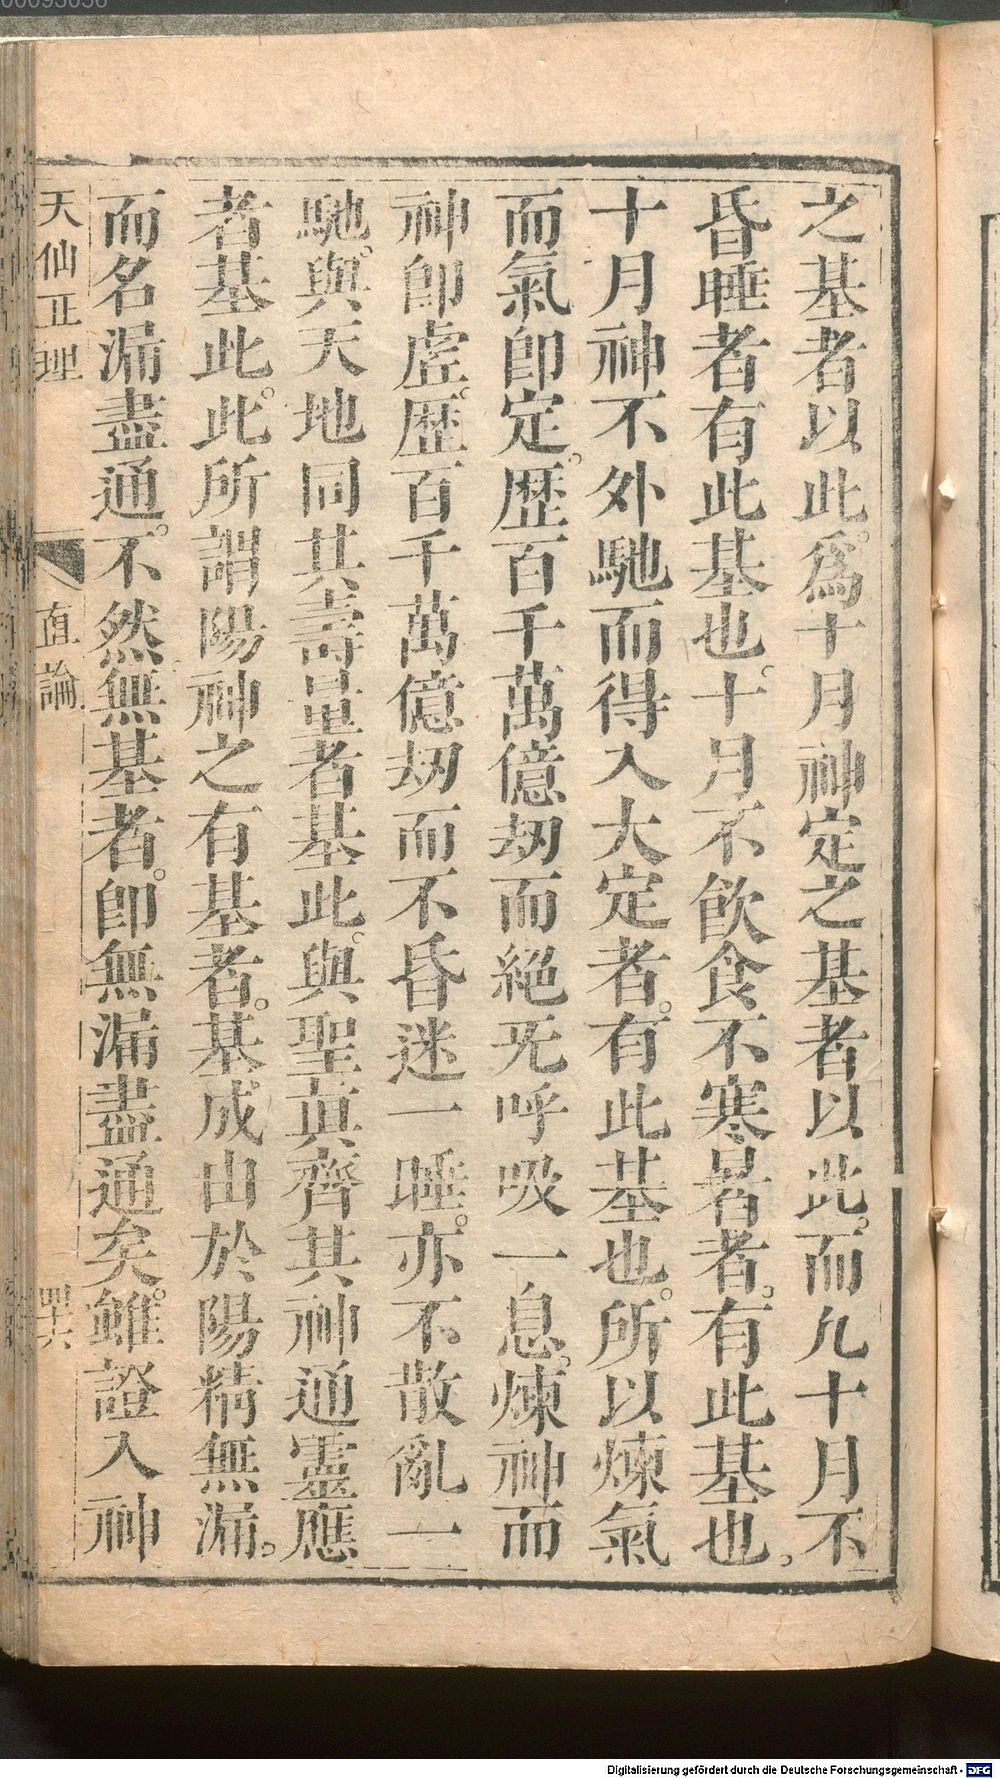 之基者以此。爲十月神定之基者以此。而九十月不
昏睡者有此基也。十月不飲食不寒暑者。有此基也。
十月神不外馳而得入大定者。有此基也。所以煉氣
而氣卽定。歴百千萬億刼而絕无呼吸一息。煉神而
神卽虗。歴百千萬億刼而不昏迷一睡。亦不散亂一
馳。與天地同其壽量者基此。與聖眞齊其神通靈應
者基此。此所謂陽神之有基者。基成由於陽精無漏。
而名漏盡通。不然無基者。卽無漏盡通矣。雖證入神
天仙正理
直論
四十六
00093056
Digitalisierung gefördert durch die Deutsche Forschungsgemeinschaft - DFG